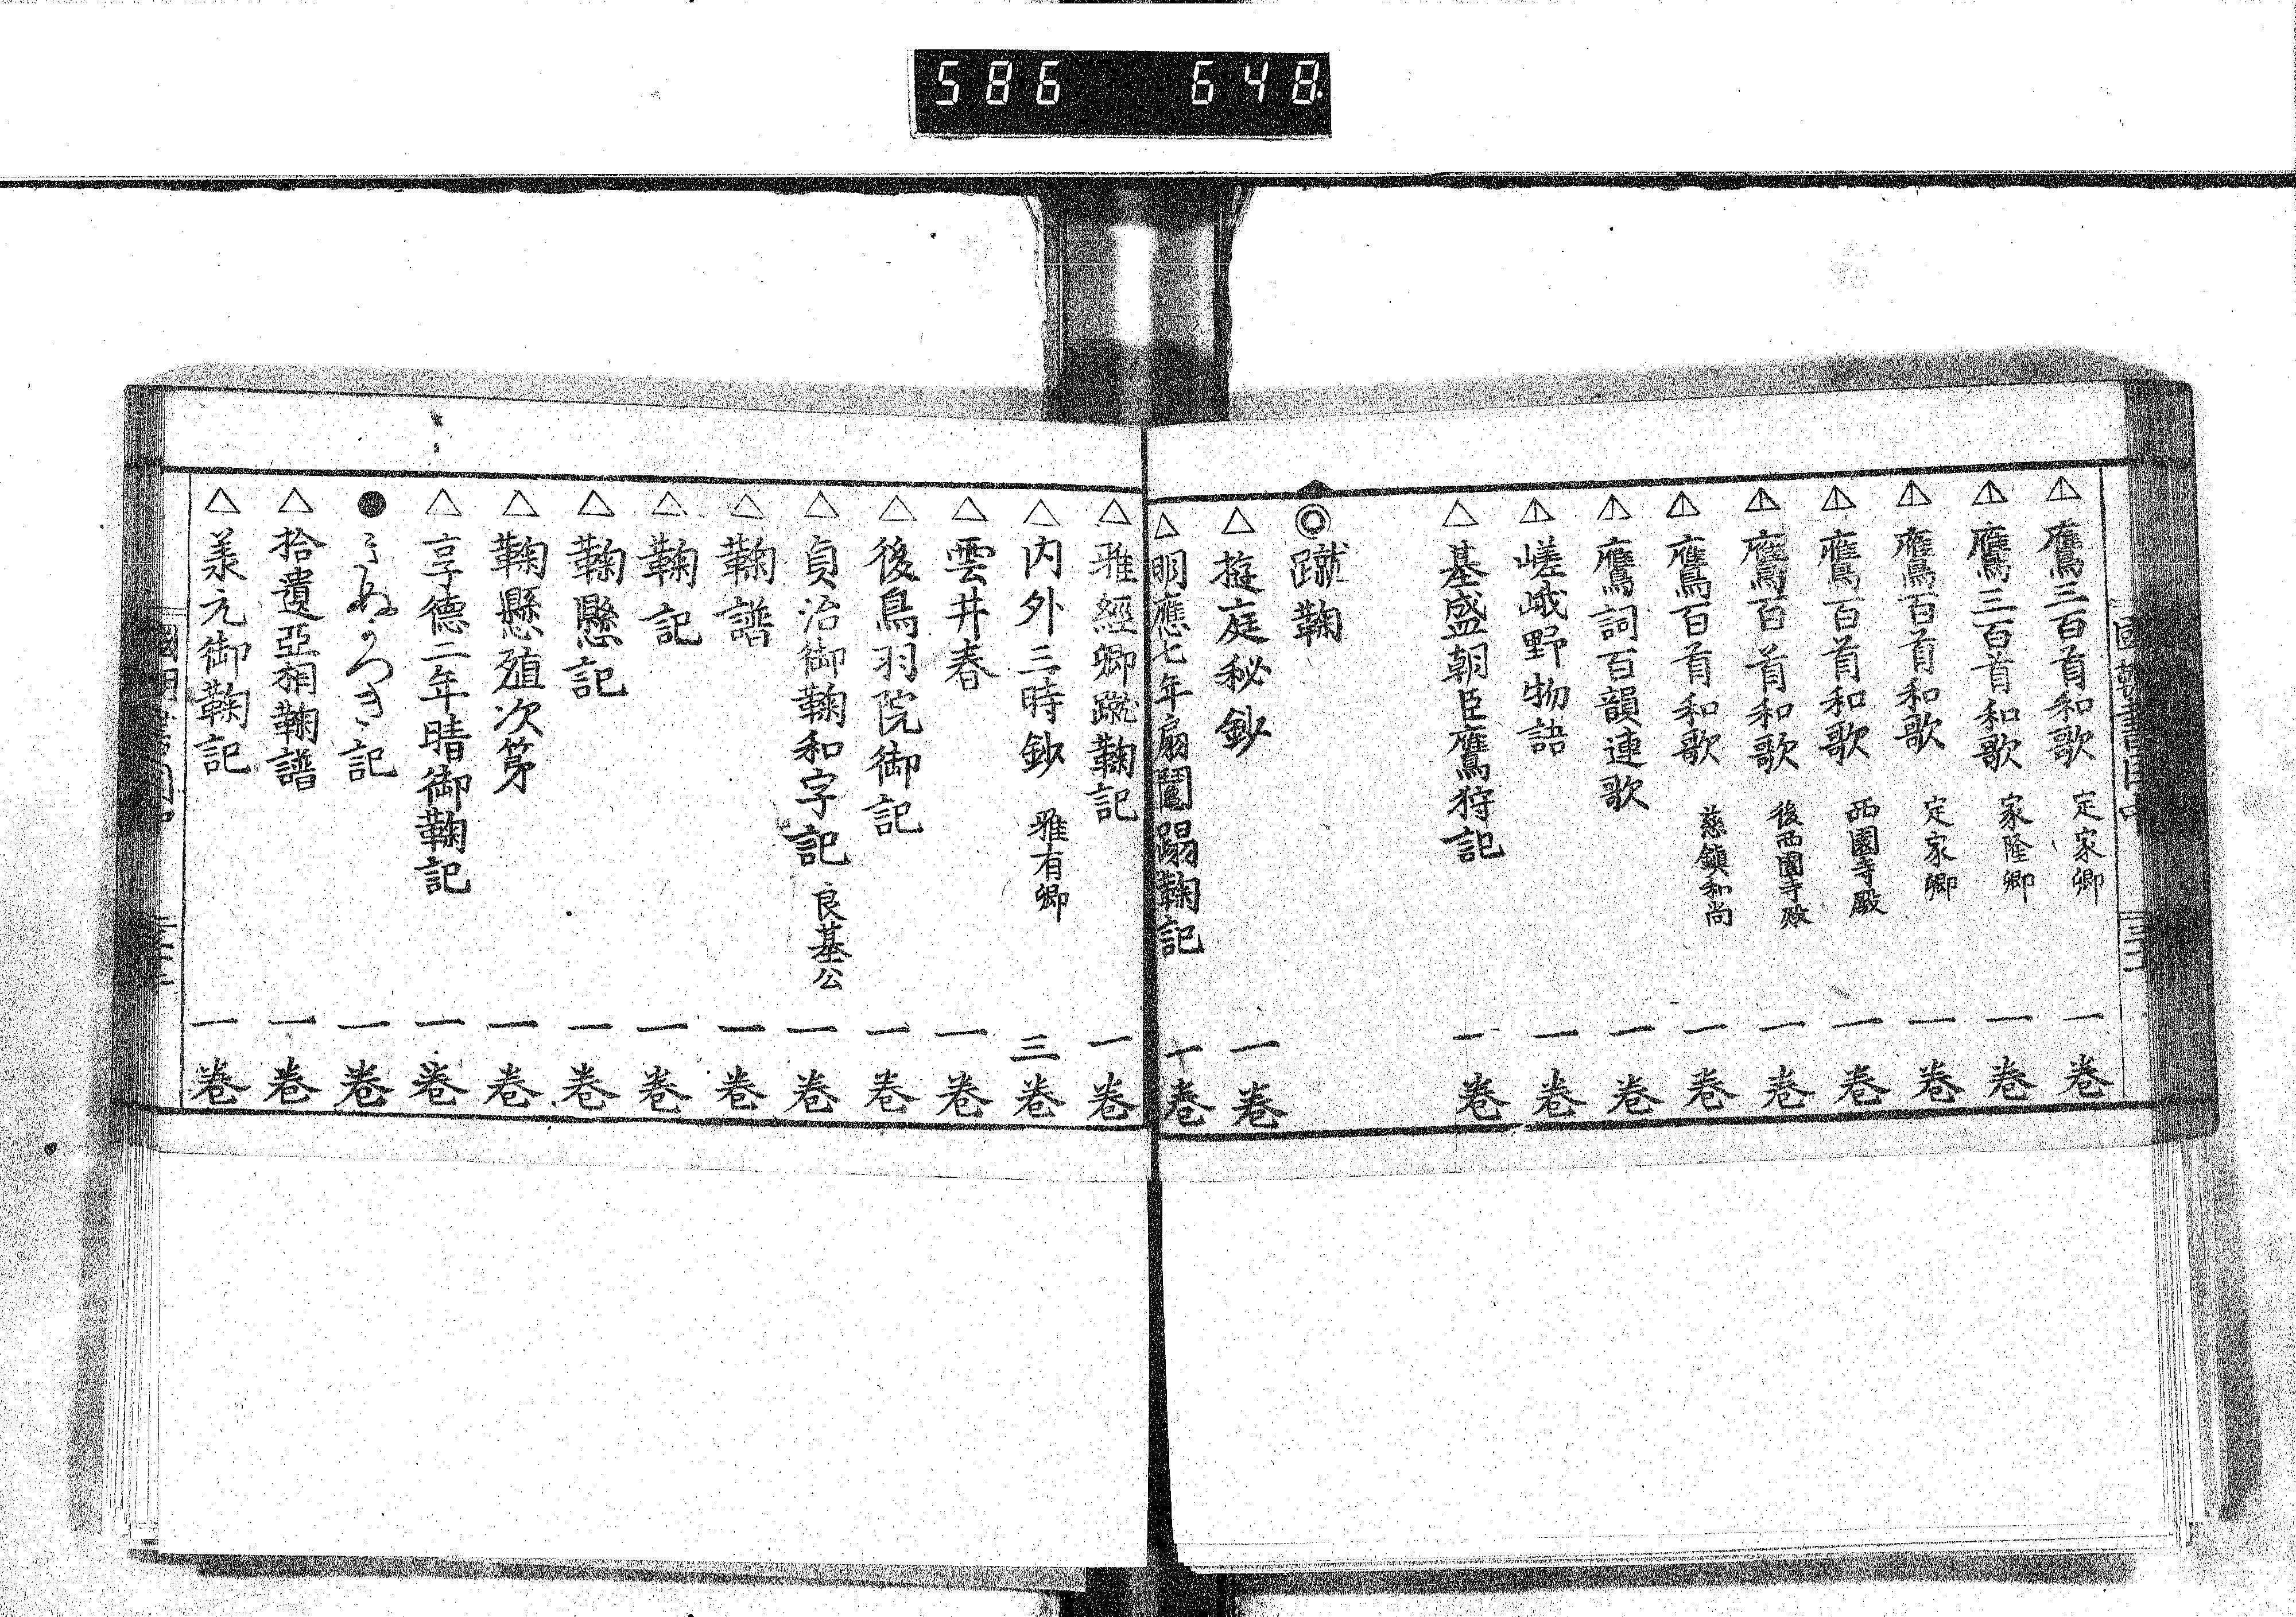 586 648.
△鷹三百首和歌 定家卿 一卷
△鷹三百首和歌 家隆卿 一卷
△鷹百首和歌 定家卿 一卷
△鷹百首和歌 西園寺殿 一卷
△鷹百首和歌 後西園寺殿 一卷
△鷹百首和歌 慈鎭和尚 一卷
△鷹詞百韻連歌 一卷
△嵯峨野物語 一卷
△基盛朝臣鷹狩記 一卷
◎蹴鞠
△遊庭秘鈔 一卷
△明應七年扇鬮蹋鞠記 一卷
△雅經卿蹴鞠記 一卷
△内外三時鈔 雅有卿 三卷
△雲井春 一卷
△後鳥羽院御記 一卷
△貞治御鞠和字記 良基公 一卷
△鞠譜 一卷
△鞠記 一卷
△鞠懸記 一卷
△鞠懸殖次第 一卷
△享德二年晴御鞠記 一卷
●記 一卷
△拾遺亞相鞠譜 一卷
△義元御鞠記 一卷